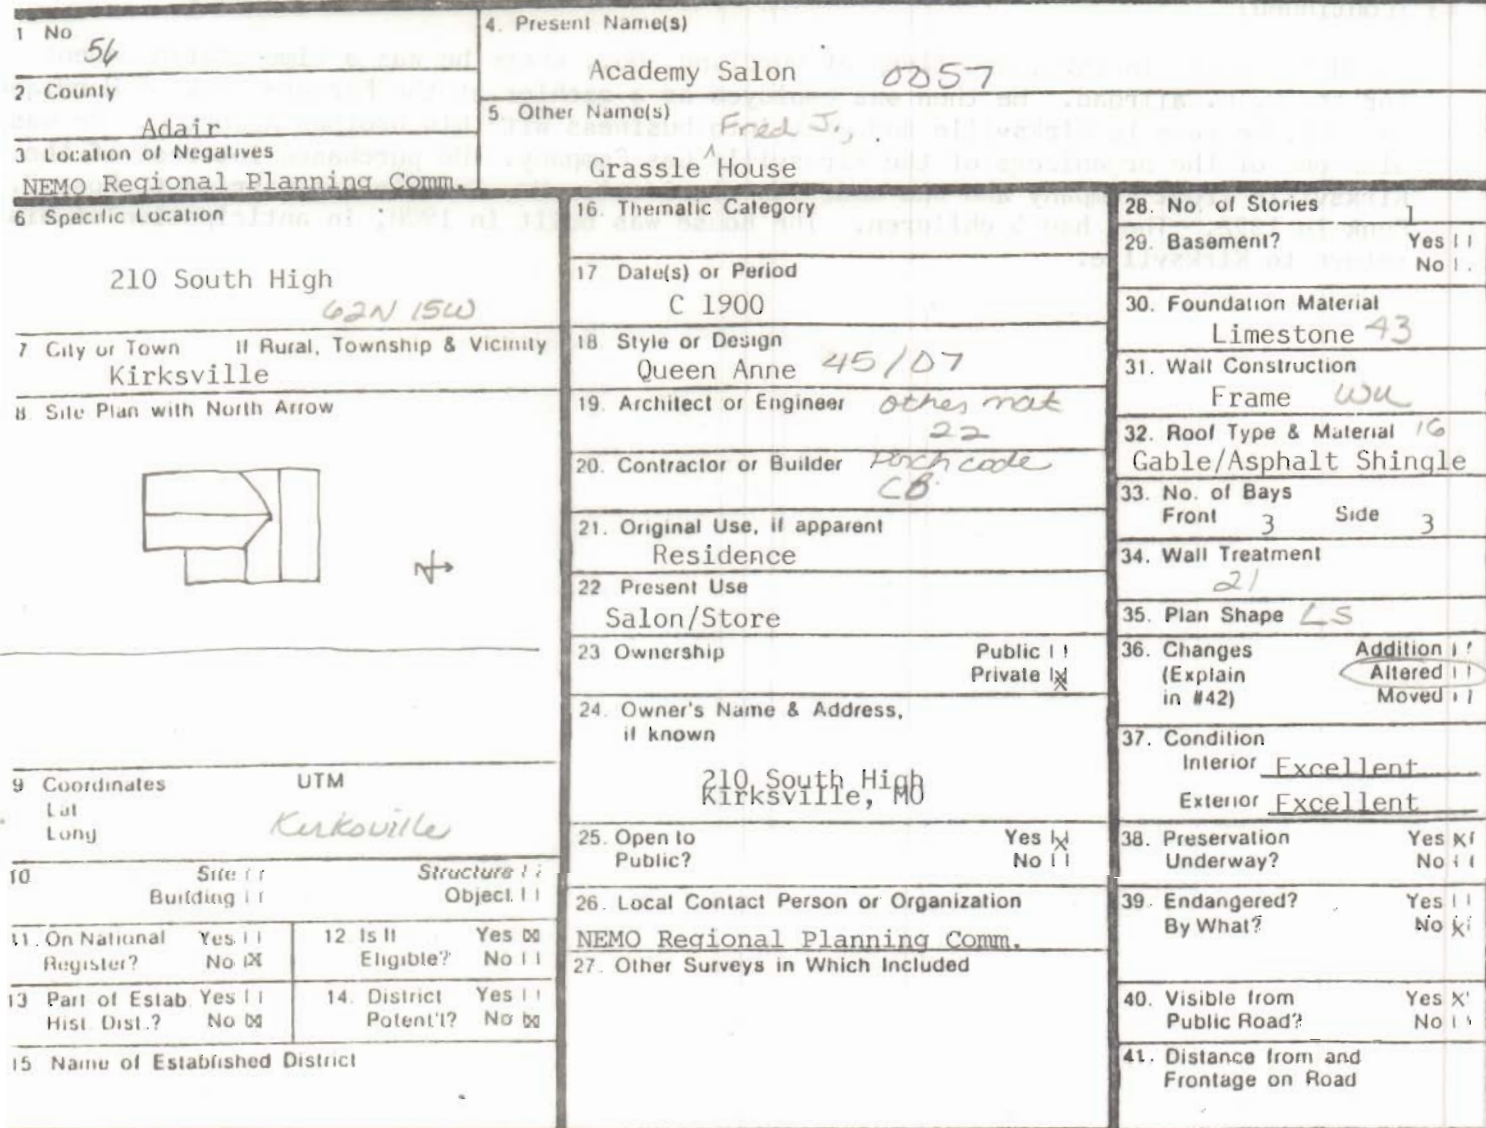 1 No
56
2 County
Adair
3 Location of Negatives
NEMO Regional Planning Comm.
4. Present Name(s)
Academy Salon 0057
5. Other Name(s) Fred J.,
Grassle ^ House
6 Specific Location
210 South High
62N 15W
7 City or Town If Rural, Township & Vicinity
Kirksville
8 Site Plan with North Arrow
N
9 Coordinates UTM
Lat
Long Kirksville
10 Site Structure
Building Object
11. On National Yes
Register? No X
12 Is It Yes X
Eligible? No
13 Part of Estab. Yes
Hist. Dist.? No X
14. District Yes
Potent'l? No X
15 Name of Established District
16. Thematic Category
17 Date(s) or Period
C 1900
18 Style or Design
Queen Anne 45/07
19. Architect or Engineer other mat
22
20. Contractor or Builder Porch code
CB
21. Original Use, if apparent
Residence
22 Present Use
Salon/Store
23 Ownership Public
Private X
24. Owner's Name & Address,
if known
210 South High
Kirksville, MO
25. Open to Yes X
Public? No
26. Local Contact Person or Organization
NEMO Regional Planning Comm.
27. Other Surveys in Which Included
28. No. of Stories 1
29. Basement? Yes
No
30. Foundation Material
Limestone 43
31. Wall Construction
Frame WU
32. Roof Type & Material 16
Gable/Asphalt Shingle
33. No. of Bays
Front 3 Side 3
34. Wall Treatment
21
35. Plan Shape LS
36. Changes Addition
(Explain Altered
in #42) Moved
37. Condition
Interior Excellent
Exterior Excellent
38. Preservation Yes X
Underway? No
39. Endangered? Yes
By What? No X
40. Visible from Yes X
Public Road? No
41. Distance from and
Frontage on Road